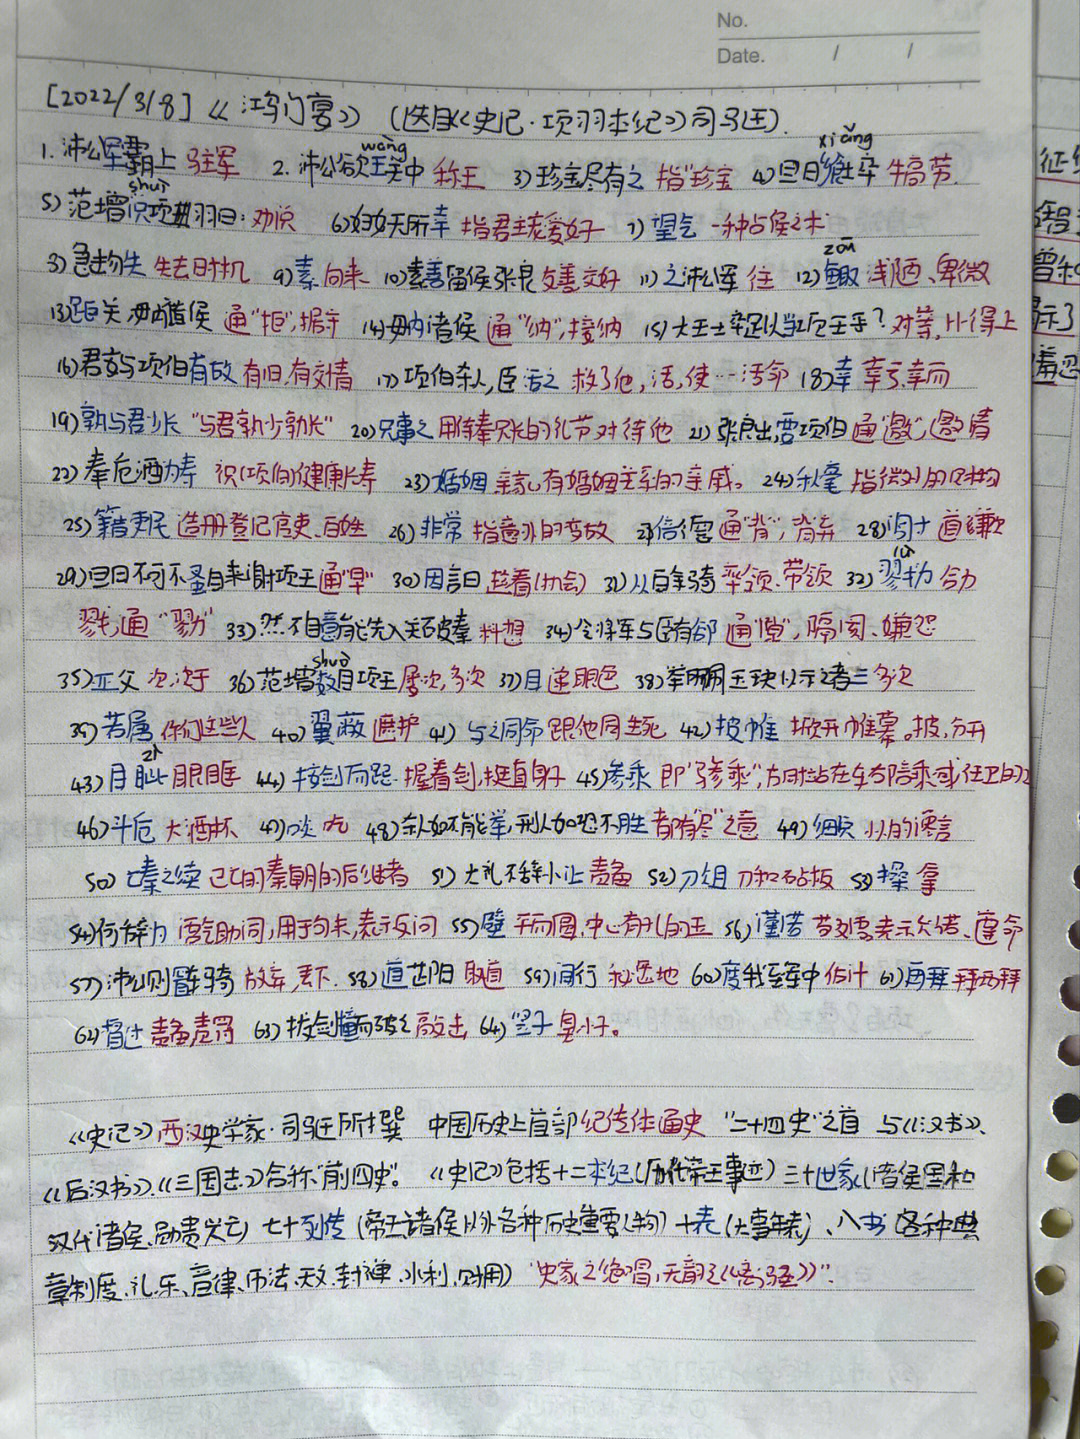 No.
Date. / /
[2022/3/8]《鸿门宴》（选自《史记·项羽本纪》司马迁）.
wàng xiǎng
1. 沛公军霸上 驻军 2. 沛公欲王关中 称王 3) 珍宝尽有之 指珍宝 4) 旦日飨士卒 犒劳
shuì
5) 范增说项羽曰: 劝说 6) 妇女无所幸 指君主宠爱好 7) 望气 一种占候之术
zōu
3) 急击勿失 失去时机 9) 素 向来 10) 素善留侯张良 友善交好 11) 之沛公军 往 12) 鲰 浅陋、卑微
13) 距关 毋内诸侯 通"拒",据守 14) 毋内诸侯 通"纳",接纳 15) 大王士卒足以当项王乎? 对等,比得上
16) 君安与项伯有故 有旧,有交情 17) 项伯杀人,臣活之 救了他,活,使…活命 18) 幸 幸亏,幸而
19) 孰与君少长 "与君孰少孰长" 20) 兄事之 用侍奉兄长的礼节对待他 21) 张良出,要项伯 通"邀",邀请
22) 奉卮酒为寿 祝(项伯)健康长寿 23) 婚姻 亲家,有婚姻关系的亲戚。 24) 秋毫 指微小的事物
25) 籍吏民 造册登记官吏、百姓 26) 非常 指意外的变故 27) 倍德 通"背",背弃 28)
lù
29) 旦日不可不蚤自来谢项王 通"早" 30) 因言曰,趁着(机会) 31) 从百余骑 率领、带领 32) 戮力 合力
戮通"勠" 33) 然不自意能先入关破秦 料想 34) 令将军与臣有郤 通"隙",隔阂、嫌怨
shuò
35) 亚父 次,次于 36) 范增数目项王 屡次,多次 37) 目 递眼色 38) 举所佩玉玦以示之者三 多次
39) 若属 你们这些人 40) 翼蔽 遮护 41) 与之同命 跟他同生死 42) 披帷 掀开帷幕。披,分开
zì
43) 目眦 眼眶 44) 按剑而跽 握着剑,挺直身子 45) 参乘 即"骖乘",古时站在车右陪乘或任卫的
46) 斗卮 大酒杯 47) 啖 吃 48) 杀人如不能举,刑人如恐不胜 都有"尽"之意 49) 细说 小人的谗言
50) 亡秦之续 已亡的秦朝的后继者 51) 大礼不辞小让 责备 52) 刀俎 刀和砧板 53) 操 拿
54) 何辞为 语气助词,用于句末,表示反问 55) 璧 平而圆,中心有孔的玉 56) 谨诺 表示允诺、遵命
57) 沛公则置车骑 放弃,丢下. 58) 道芷阳 取道 59) 间行 秘密地 60) 度我至军中 估计 61) 再拜 拜两拜
62) 督过 责备,责罚 63) 拔剑撞而破之 敲击 64) "竖子" 臭小子。
《史记》西汉史学家·司马迁所撰 中国历史上首部纪传体通史 "二十四史"之首 与《汉书》、
《后汉书》、《三国志》合称"前四史"。 《史记》包括十二本纪(历代帝王事迹) 三十世家(诸侯国和
汉代诸侯、勋贵兴亡) 七十列传(帝王诸侯以外各种历史重要人物) 十表(大事年表)、八书(各种典
章制度、礼、乐、音律、历法、天文、封禅、水利、财用) "史家之绝唱,无韵之《离骚》".